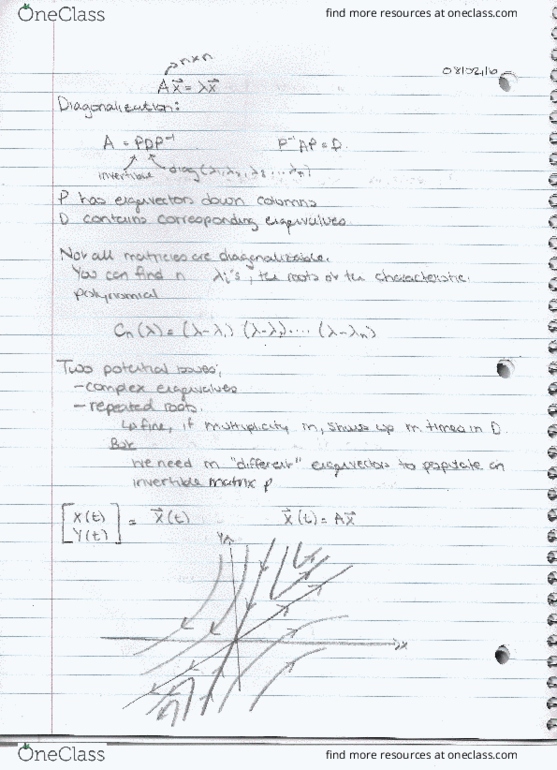 OneClass
find more resources at oneclass.com
n×n
Ax⃗ = λx⃗
Diagonalization:
A = PDP⁻¹ P⁻¹AP = D.
invertible diag(λ₁, λ₂, λ₃ ... λₙ)
P has eigenvectors down columns
D contains corresponding eigenvalues
Not all matricies are diagonalizable.
You can find n λi's, the roots of the characteristic
polynomial
Cₙ(λ) = (λ-λ₁) (λ-λ₂).... (λ-λₙ)
Two potential issues;
- complex eigenvalues
- repeated roots.
↳ fine, if multiplicity m, shows up m times in D
But
We need m "different" eigenvectors to populate an
invertible matrix P
[X(t) Y(t)] = X⃗(t) X⃗(t) = AX⃗
Y
X
OneClass
find more resources at oneclass.com